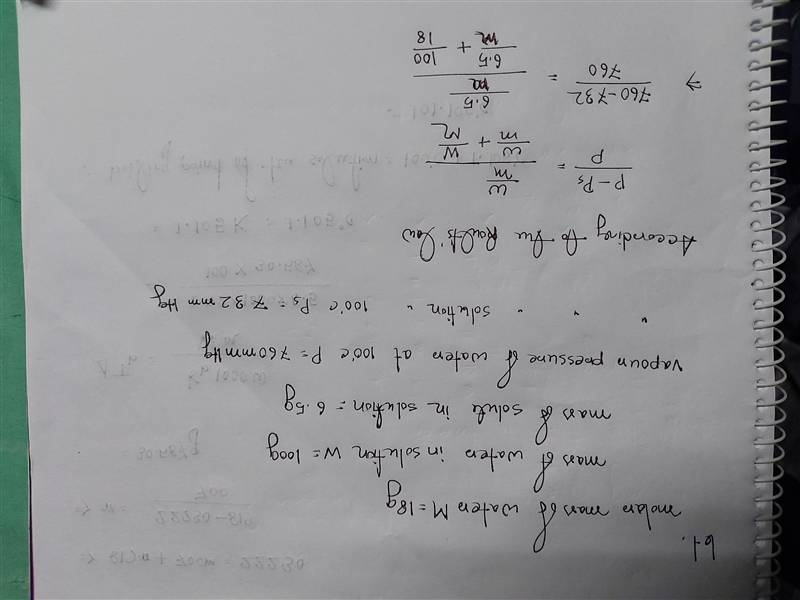 61.
molar mass of water M = 18g
mass of water in solution W = 100g
mass of solute in solution = 6.5g
vapour pressure of water at 100°c P = 760mmHg
" " solution " 100°c Ps = 732 mm Hg
According to the Raults' law
(P - Ps)/P = (w/m)/(w/m + W/M)
⇒ (760-732)/760 = (6.5/m)/(6.5/m + 100/18)